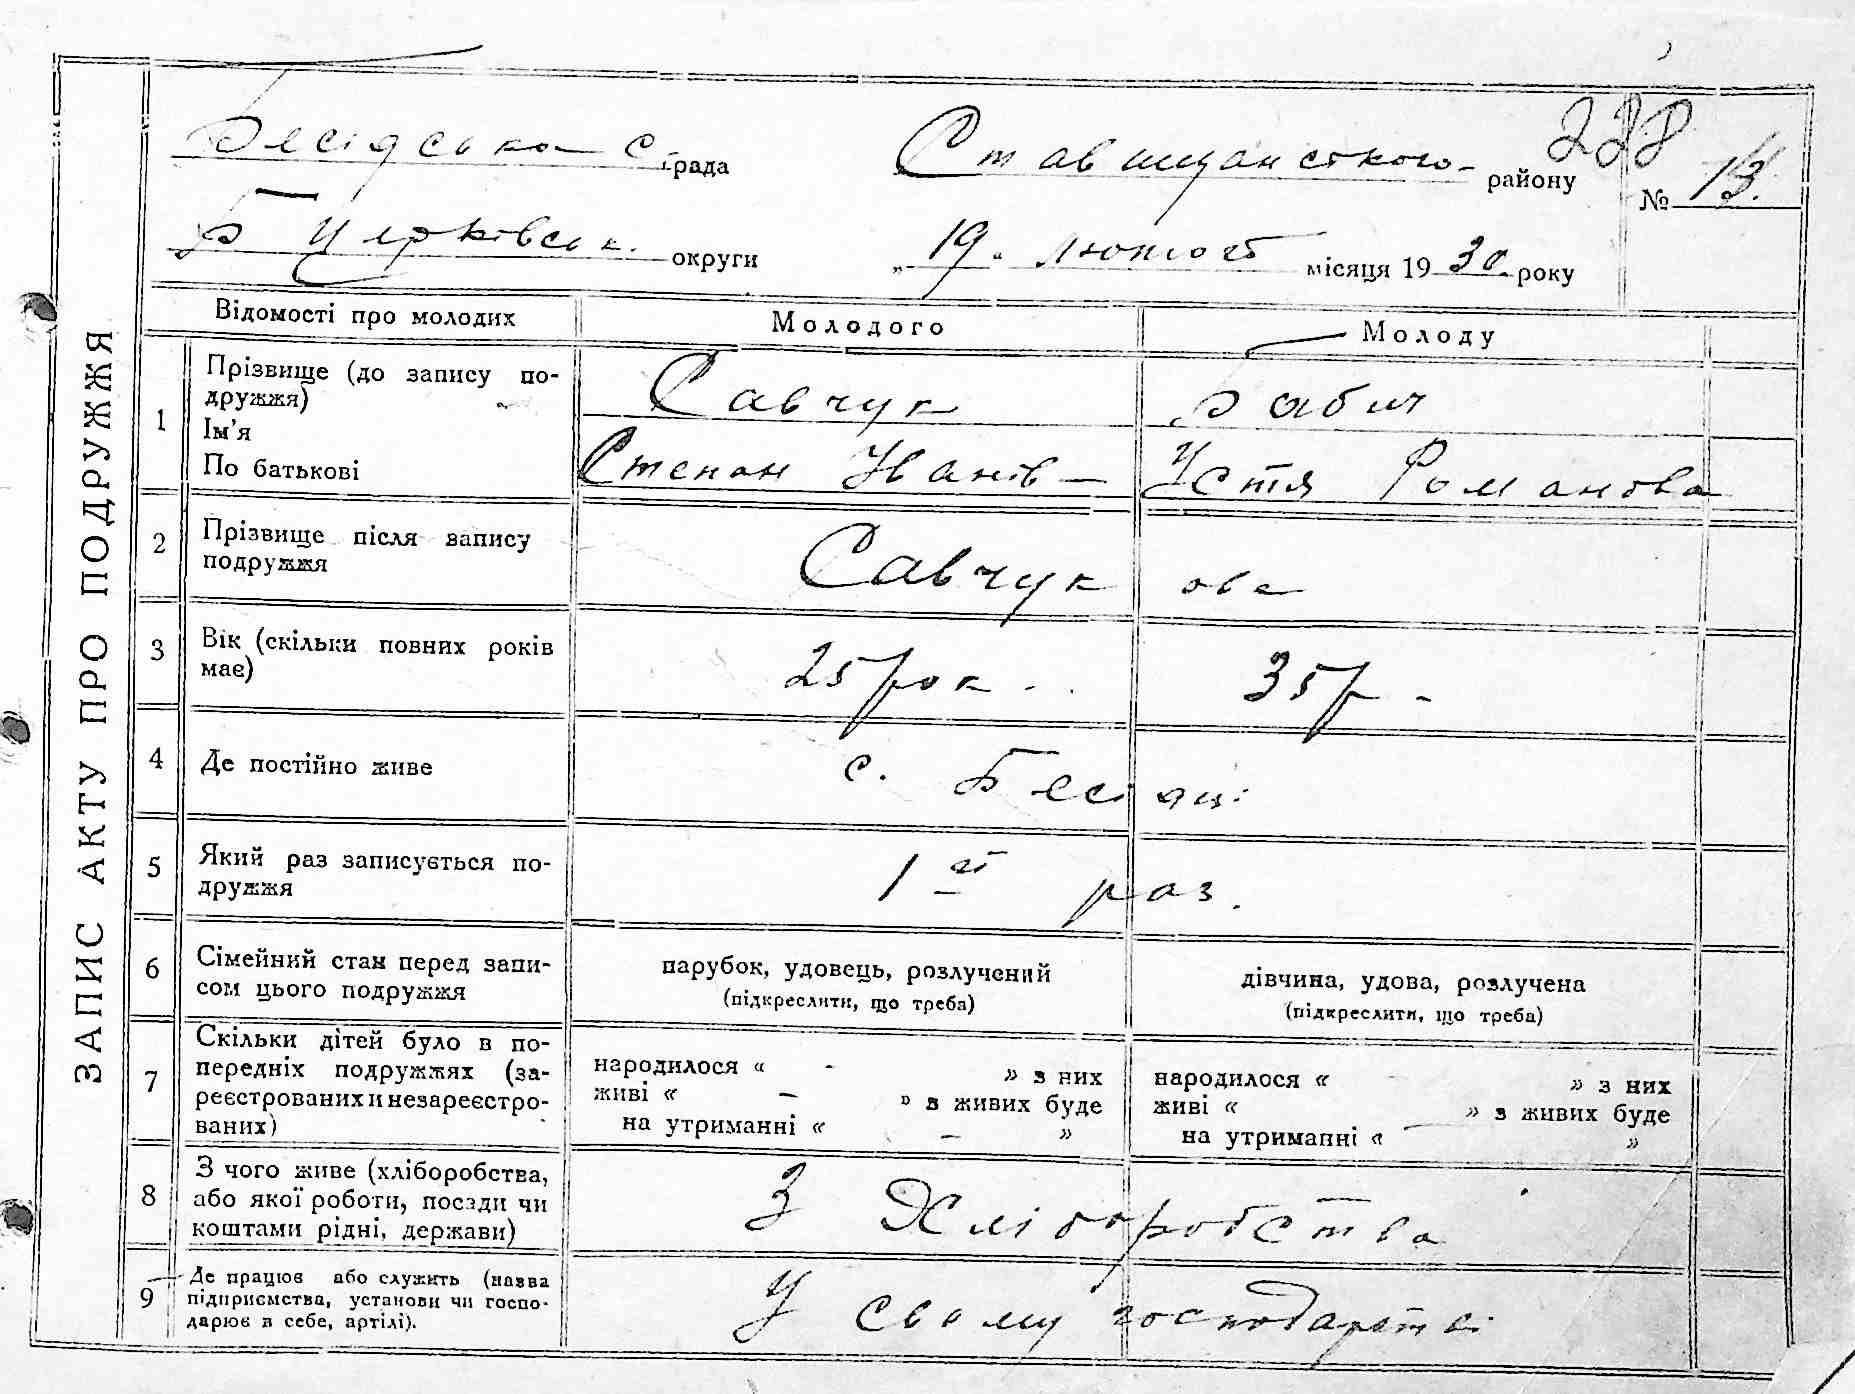 ЗАПИС АКТУ ПРО ПОДРУЖЖЯ
Бесідська с-рада Ставищанського району 228 № 13.
Б Церківськ. округи „19" лютого місяця 1930 року
Відомості про молодих Молодого Молоду
1 Прізвище (до запису по-
дружжя) Савчук Бабич
Ім'я
По батькові Степан Иванів – Устя Романова
2 Прізвище після запису
подружжя Савчук ова
3 Вік (скільки повних років
має) 25 рок - 35 р -
4 Де постійно живе с. Бесідці
5 Який раз записується по-
дружжя 1й раз.
6 Сімейний стан перед запи-
сом цього подружжя парубок, удовець, розлучений дівчина, удова, розлучена
(підкреслити, що треба) (підкреслити, що треба)
7 Скільки дітей було в по-
передніх подружжях (за-
реєстрованих и незареєстро-
ваних)
народилося « - » з них народилося « » з них
живі « – » з живих буде живі « » з живих буде
на утриманні « – » на утриманні « – »
8 З чого живе (хліборобства,
або якої роботи, посади чи
коштами рідні, держави) З Хліборобства
9 Де працює або служить (назва
підприємства, установи чи госпо-
дарює в себе, артілі). У свому господарстві